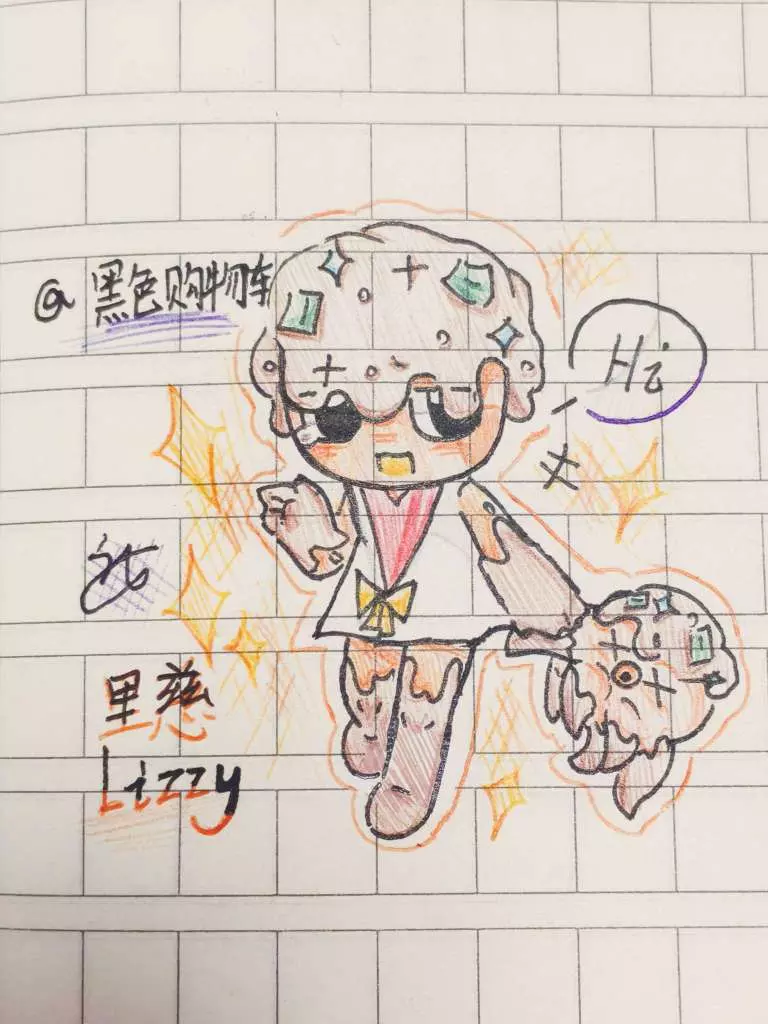 @黑色购物车
Hi
里慈
Lizzy